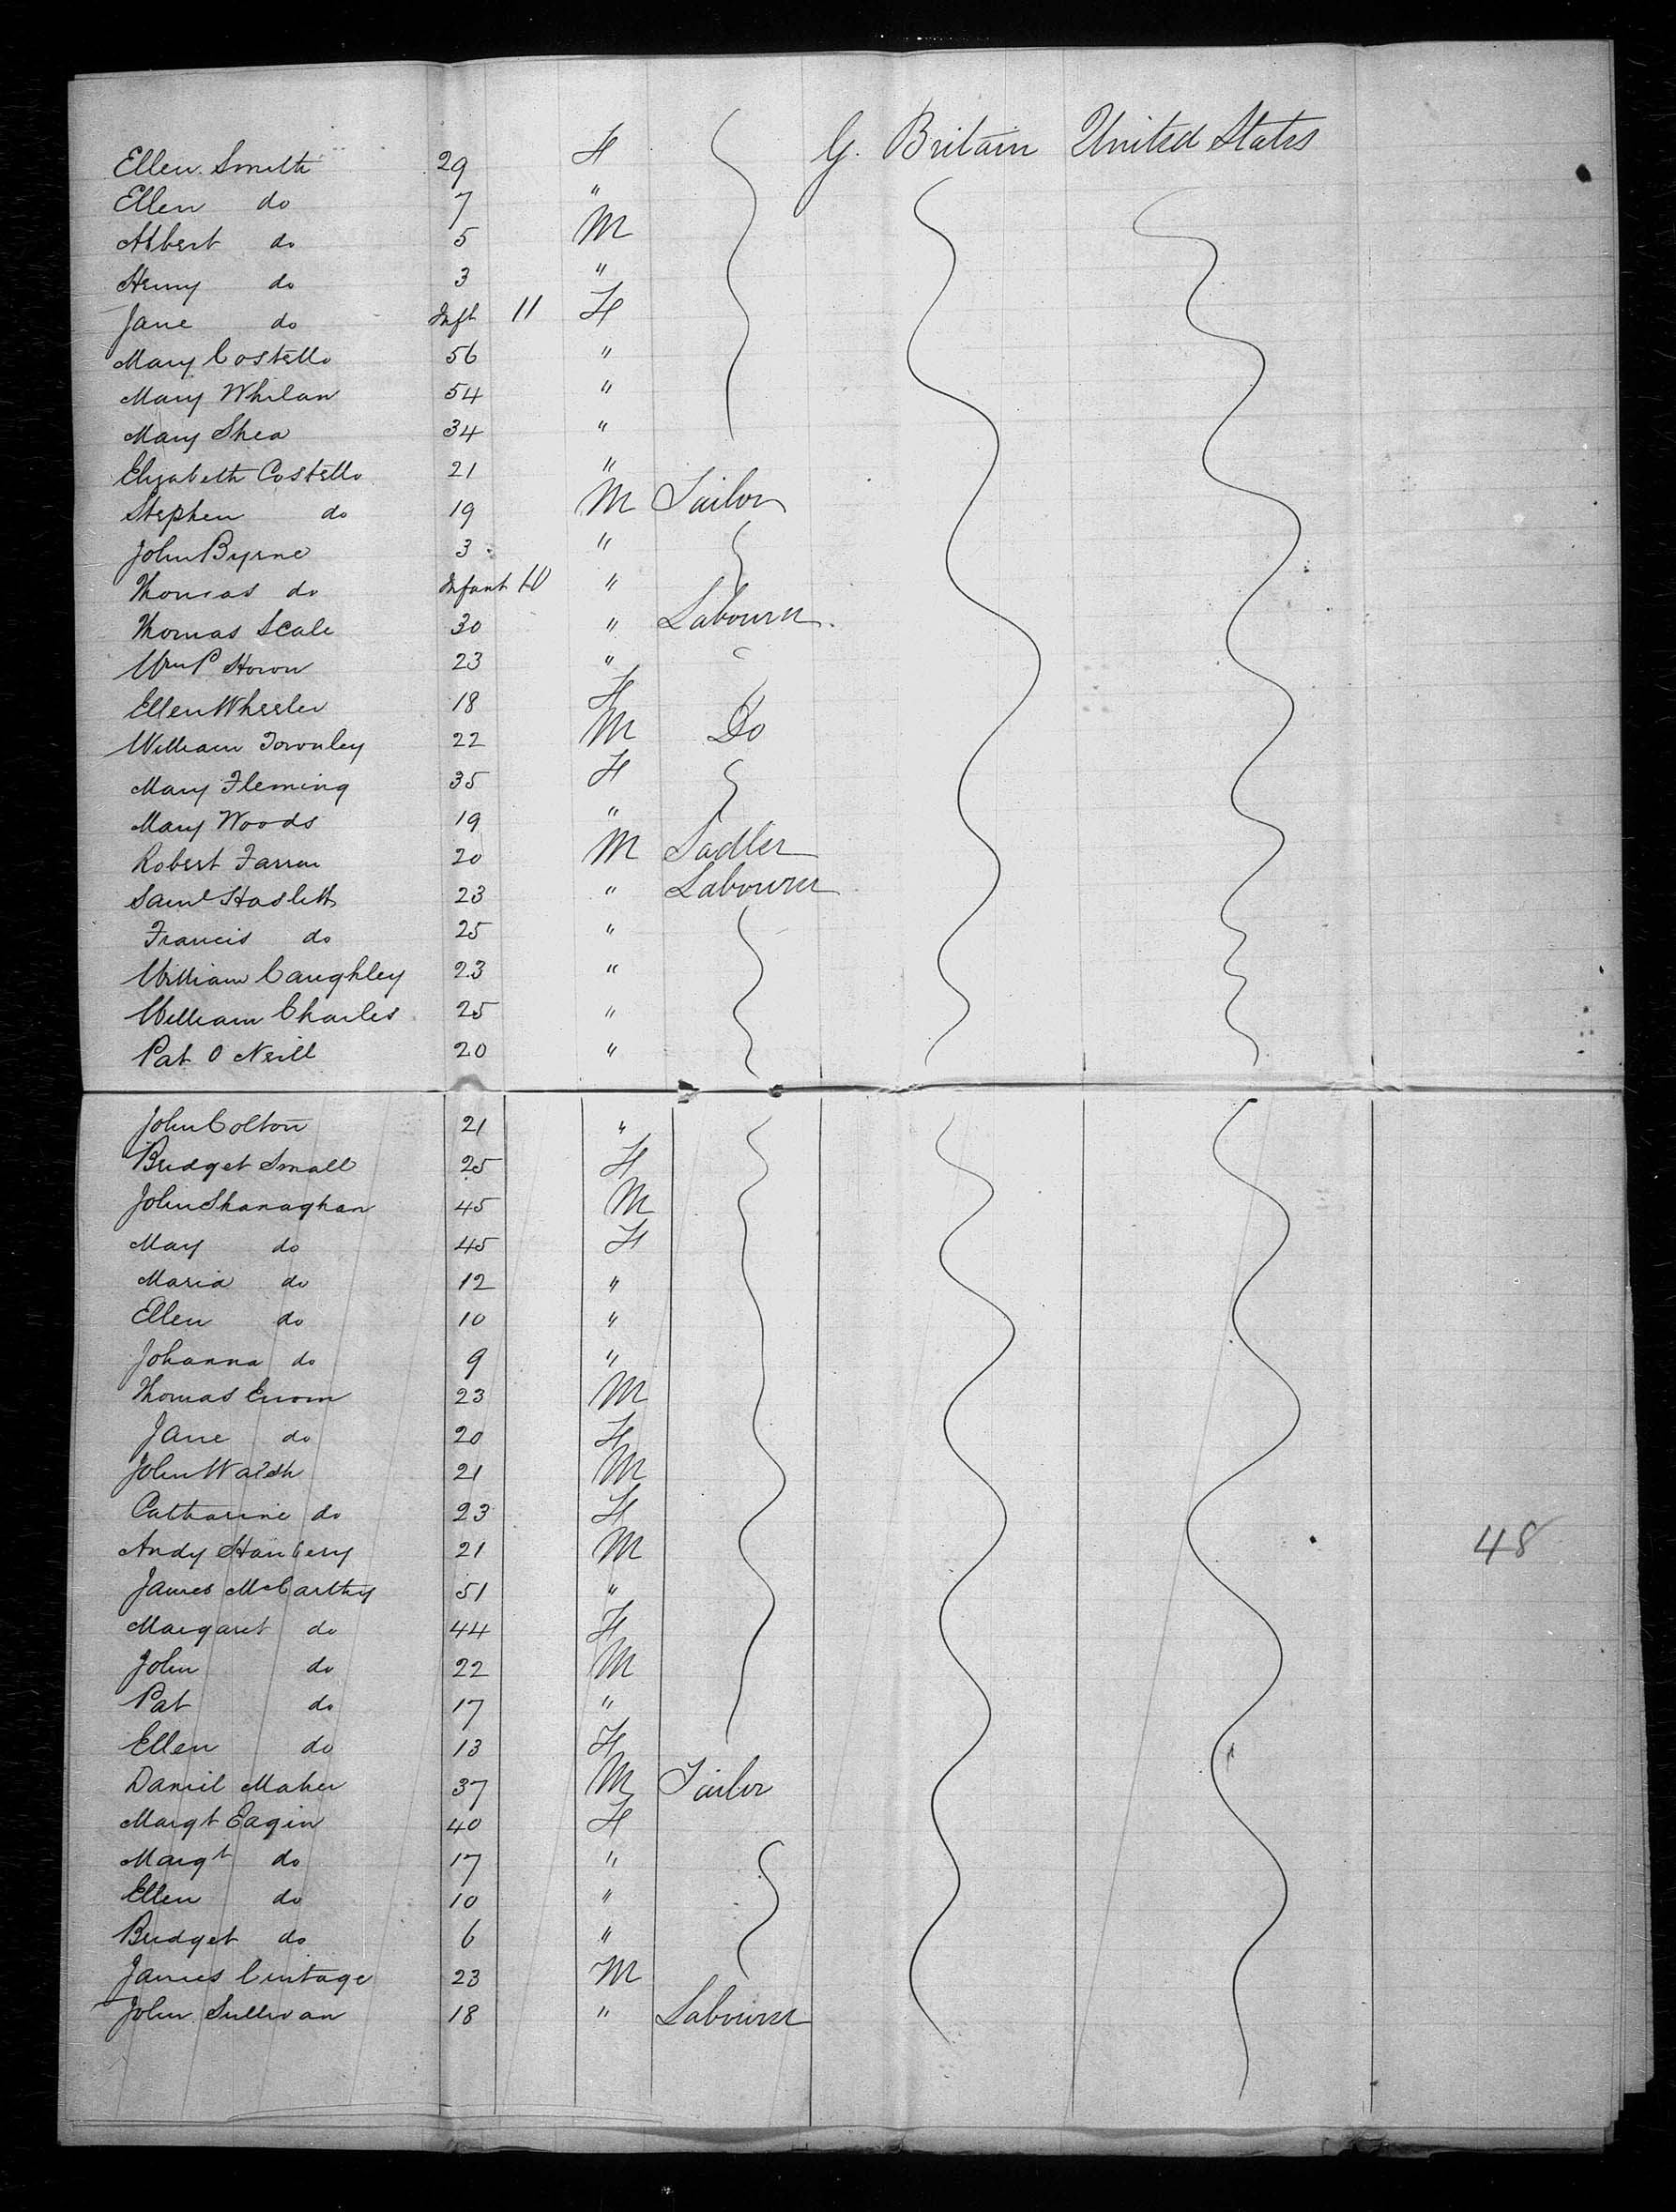 Ellen Smith 29 F G. Britain United States
Ellen do 7 "
Albert do 5 M
Henry do 3 "
Jane do Inft 11 F
Mary Costello 56 "
Mary Whelan 54 "
Mary Shea 34 "
Elizabeth Costello 21 "
Stephen do 19 M Tailor
John Byrne 3 "
Thomas do Infant 10 "
Thomas Scale 30 " Labourer
Wm P Horon 23 "
Ellen Wheeler 18 F
William Townley 22 M Do
Mary Fleming 35 F
Mary Woods 19 "
Robert Farran 20 M Sadler
Saml Haslett 23 " Labourer
Francis do 25 "
William Caughley 23 "
William Charles 25 "
Pat O Neill 20 "
John Colton 21 "
Bridget Small 25 F
John Shanaghan 45 M
Mary do 45 F
Maria do 12 "
Ellen do 10 "
Johanna do 9 "
Thomas 23 M
Jane do 20 F
John Walsh 21 M
Catharine do 23 F
Andy Hanbery 21 M 48
James McCarthy 51 "
Margaret do 44 F
John do 22 M
Pat do 17 "
Ellen do 13 F
Daniel Maher 37 M Tailor
Margt Eagin 40 F
Margt do 17 "
Ellen do 10 "
Bridget do 6 "
James 23 M
John Sullivan 18 " Labourer